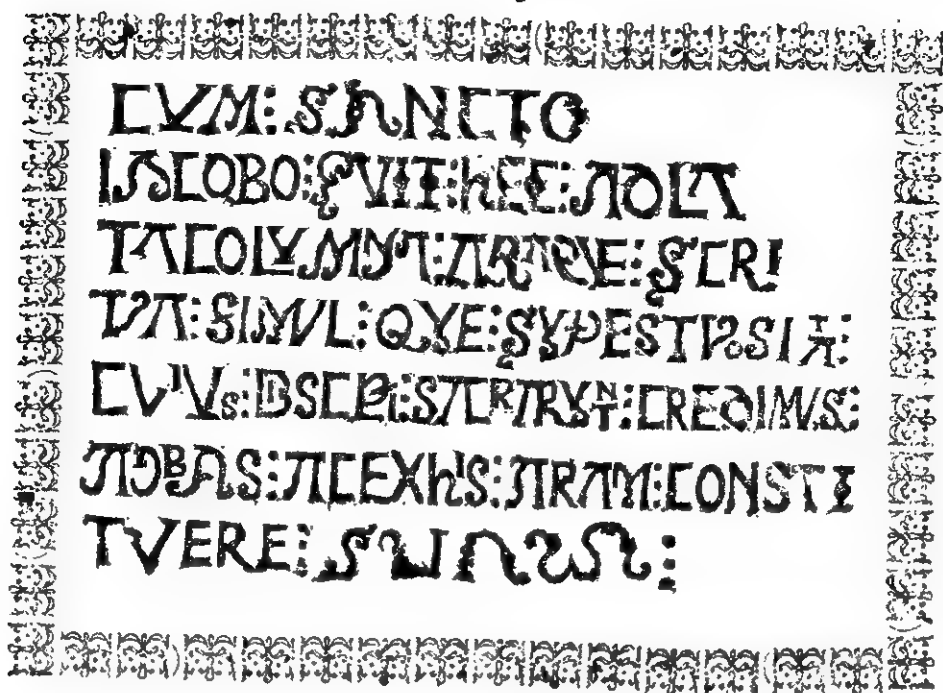 CVM: SANCTO
IACOBO: FVIT: hEC: ADLA
TA COLVMNA: ARAQVE: SCRI
TPA: SIMVL: QVE: SVPEST POSITA:
CVIVS: DISCPLI: SACRARVNT: CREDIMVS:
ADBAS: AC EX hIS: ARAM: CONSTI
TVERE: